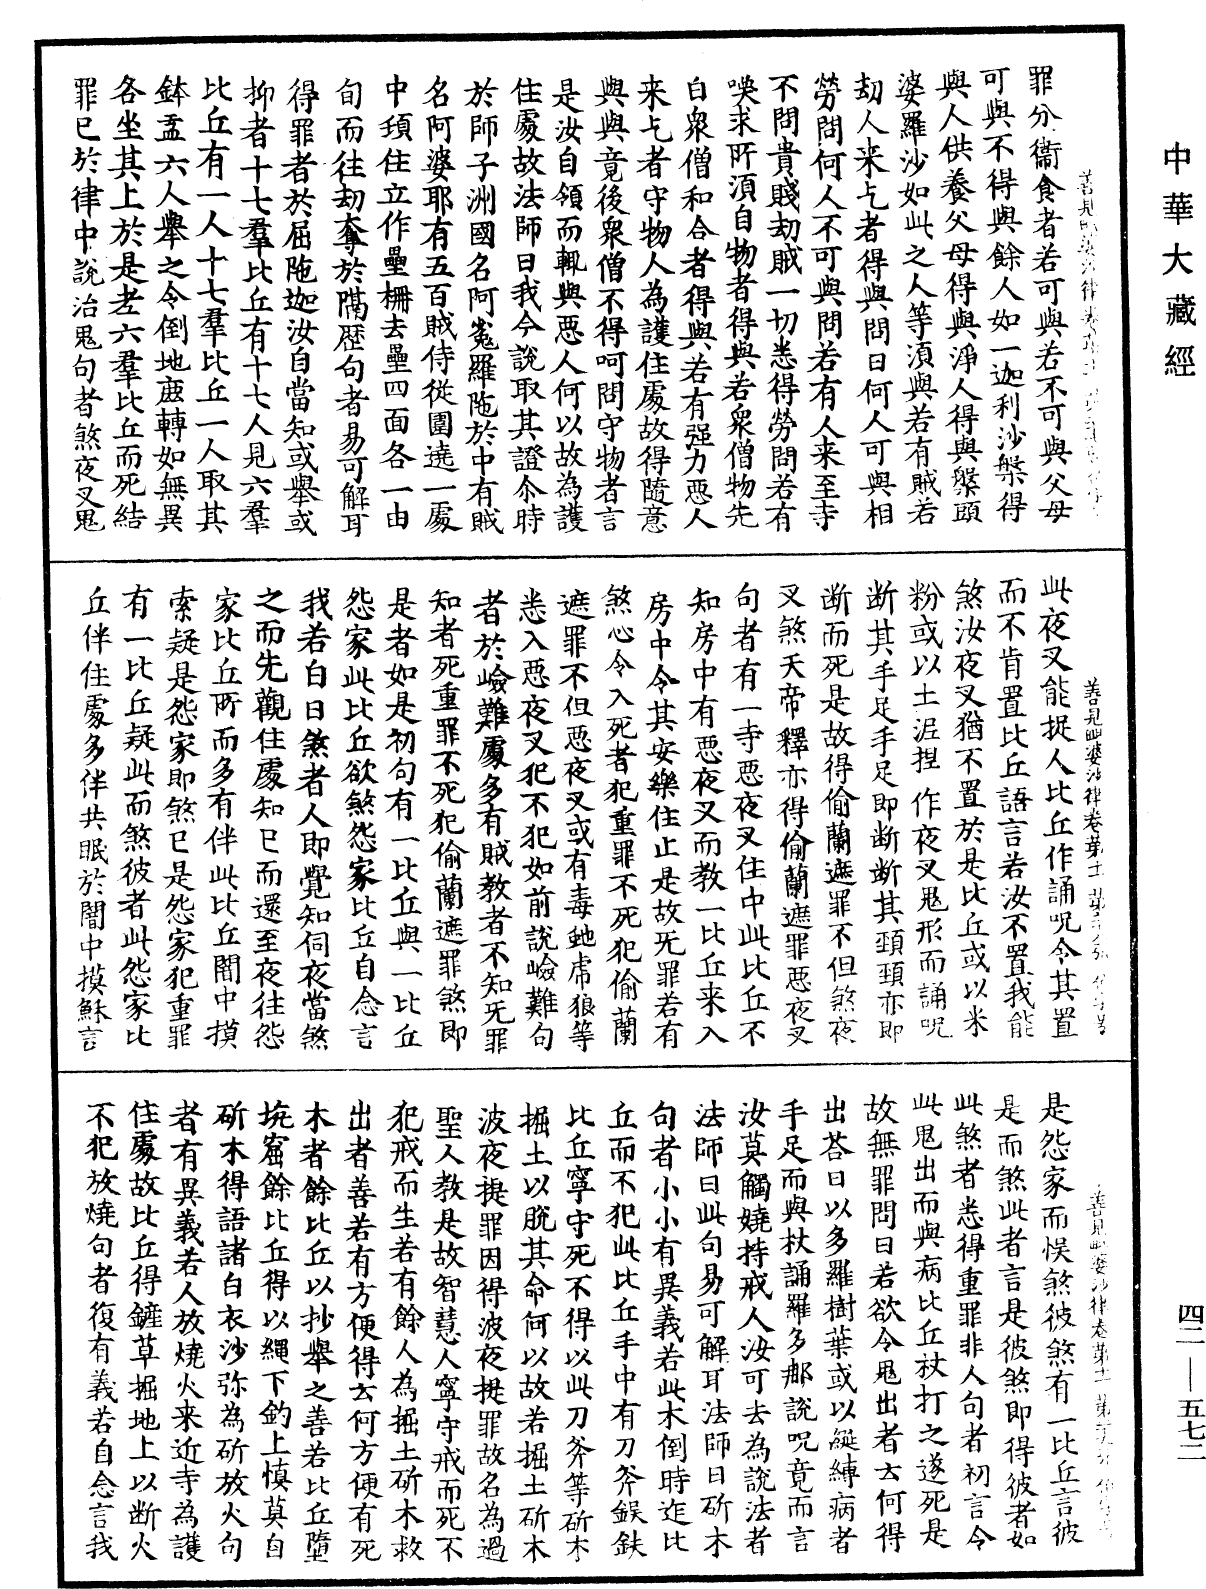 中華大藏經
四二—五七二
罪分衞食者若可與若不可與父母
可與不得與餘人如一迦利沙槃得
與人供養父母得與淨人得與槃頭
婆羅沙如此之人等湏與若有賊若
劫人来乞者得與問日何人可與相
勞問何人不可與問若有人来至寺
不問貴賤劫賊一切悉得勞問若有
㗋求所湏自物者得與若衆僧物先
白衆僧和合者得與若有强力惡人
来乞者守物人為護住處故得隨意
與與竟後衆僧不得呵問守物者言
是汝自領而輒與惡人何以故為護
住處故法師曰我今說取其證尒時
於師子洲國名阿㝹羅陁於中有賊
名阿婆耶有五百賊侍從圍遶一處
中頊住立作壘栅去壘四面各一由
旬而往劫奪於隔歷句者易可解耳
得罪者於屈陁迦汝自當知或舉或
抑者十七羣比丘有十七人見六羣
比丘有一人十七羣比丘一人取其
鉢盂六人舉之令倒地鹿轉如無異
各坐其上於是老六羣比丘而死結
罪已於律中說治鬼句者煞夜叉鬼
善見毗婆沙律卷第十一
此夜叉能捉人比丘作誦呪令其置
而不肯置比丘語言若汝不置我能
煞汝夜叉猶不置於是比丘或以米
粉或以土涅捏作夜叉鬼形而誦呪
断其手足手足即断断其頸頸亦即
断而死是故得偷蘭遮罪不但煞夜
叉煞天帝釋亦得偷蘭遮罪惡夜叉
句者有一寺惡夜叉住中此比丘不
知房中有惡夜叉而教一比丘来入
房中令其安樂住止是故旡罪若有
煞心令入死者犯重罪不死犯偷蘭
遮罪不但惡夜叉或有毒虵虎狼等
悉入惡夜叉犯不犯如前說嶮難句
者於嶮難處多有賊教者不知旡罪
知者死重罪不死犯偷蘭遮罪煞即
是者如是初句有一比丘與一比丘
怨家此比丘欲煞怨家比丘自念言
我若白日煞者人即覺知伺夜當煞
之而先觀住處知已而還至夜往怨
家比丘所而多有伴此比丘闇中摸
索疑是怨家即煞已是怨家犯重罪
有一比丘疑此而煞彼者此怨家比
丘伴住處多伴共眠於闇中摸穌言
善見毗婆沙律卷第十一
是怨家而悮煞彼煞有一比丘言彼
是而煞此者言是彼煞即得彼者如
此煞者悉得重罪非人句者初言令
此鬼出而與病比丘杖打之遂死是
故無罪問曰若欲令鬼出者去何得
出荅曰以多羅樹葉或以綖縛病者
手足而與杖誦羅多那說呪竟而言
汝莫觸嬈持戒人汝可去為說法者
法師曰此句易可解耳法師日斫木
句者小小有異義若此木倒時迮比
丘而不犯此比丘手中有刀斧鋘鈇
比丘寧守死不得以此刀斧等斫木
掘土以脫其命何以故若掘土斫木
波夜提罪因得波夜提罪故名為過
聖人教是故智慧人寧守戒而死不
犯戒而生若有餘人為掘土斫木救
出者善若有方便得去何方便有死
木者餘比丘以抄舉之善若比丘墮
坑窟餘比丘得以繩下釣上慎莫自
斫木得語諸白衣沙弥為斫放火句
者有異義若人放燒火来近寺為護
住處故比丘得鏟草掘地上以断火
不犯放燒句者復有義若自念言我
善見毗婆沙律卷第十一